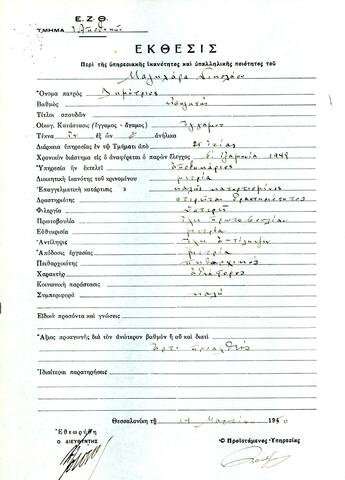 Ε.Ζ.Θ.
ΤΜΗΜΑ
ΕΚΘΕΣΙΣ
Περὶ τῆς ὑπηρεσιακῆς ἱκανότητος καὶ ὑπαλληλικῆς ποιότητος τοῦ
Ὄνομα πατρὸς Δημήτριος
Βαθμὸς
Τίτλοι σπουδῶν
Οἰκογ. Κατάστασις (ἔγγαμος - ἄγαμος) Ἔγγαμος
Τέκνα ἐξ ὧν ἀνήλικα
Διάρκεια ὑπηρεσίας ἐν τῷ Τμήματι ἀπὸ
Χρονικὸν διάστημα εἰς ὃ ἀναφέρεται ὁ παρὼν ἔλεγχος ἑξαμηνία 1949
Ὑπηρεσία ἣν ἐκτελεῖ ἀποθηκάριος
Διοικητικὴ ἱκανότης τοῦ κρινομένου μετρία
Ἐπαγγελματικὴ κατάρτισις καλῶς κατηρτισμένος
Δραστηριότης στερεῖται δραστηριότητος
Φιλεργία ὑστερεῖ
Πρωτοβουλία
Εὐθυκρισία μετρία
Ἀντίληψις
Ἀπόδοσις ἐργασίας μετρία
Πειθαρχικότης πειθαρχικὸς
Χαρακτὴρ ἀδιάφορος
Κοινωνικὴ παράστασις
Συμπεριφορὰ καλή
Εἰδικὰ προσόντα καὶ γνώσεις
Ἄξιος προαγωγῆς διὰ τὸν ἀνώτερον βαθμὸν ἢ οὒ καὶ διατί
Ἰδιαίτεραι παρατηρήσεις
Θεσσαλονίκη τῇ 14 Μαρτίου 1950
Ἐθεωρήθη
Ο ΔΙΕΥΘΥΝΤΗΣ
Ὁ Προϊστάμενος Ὑπηρεσίας